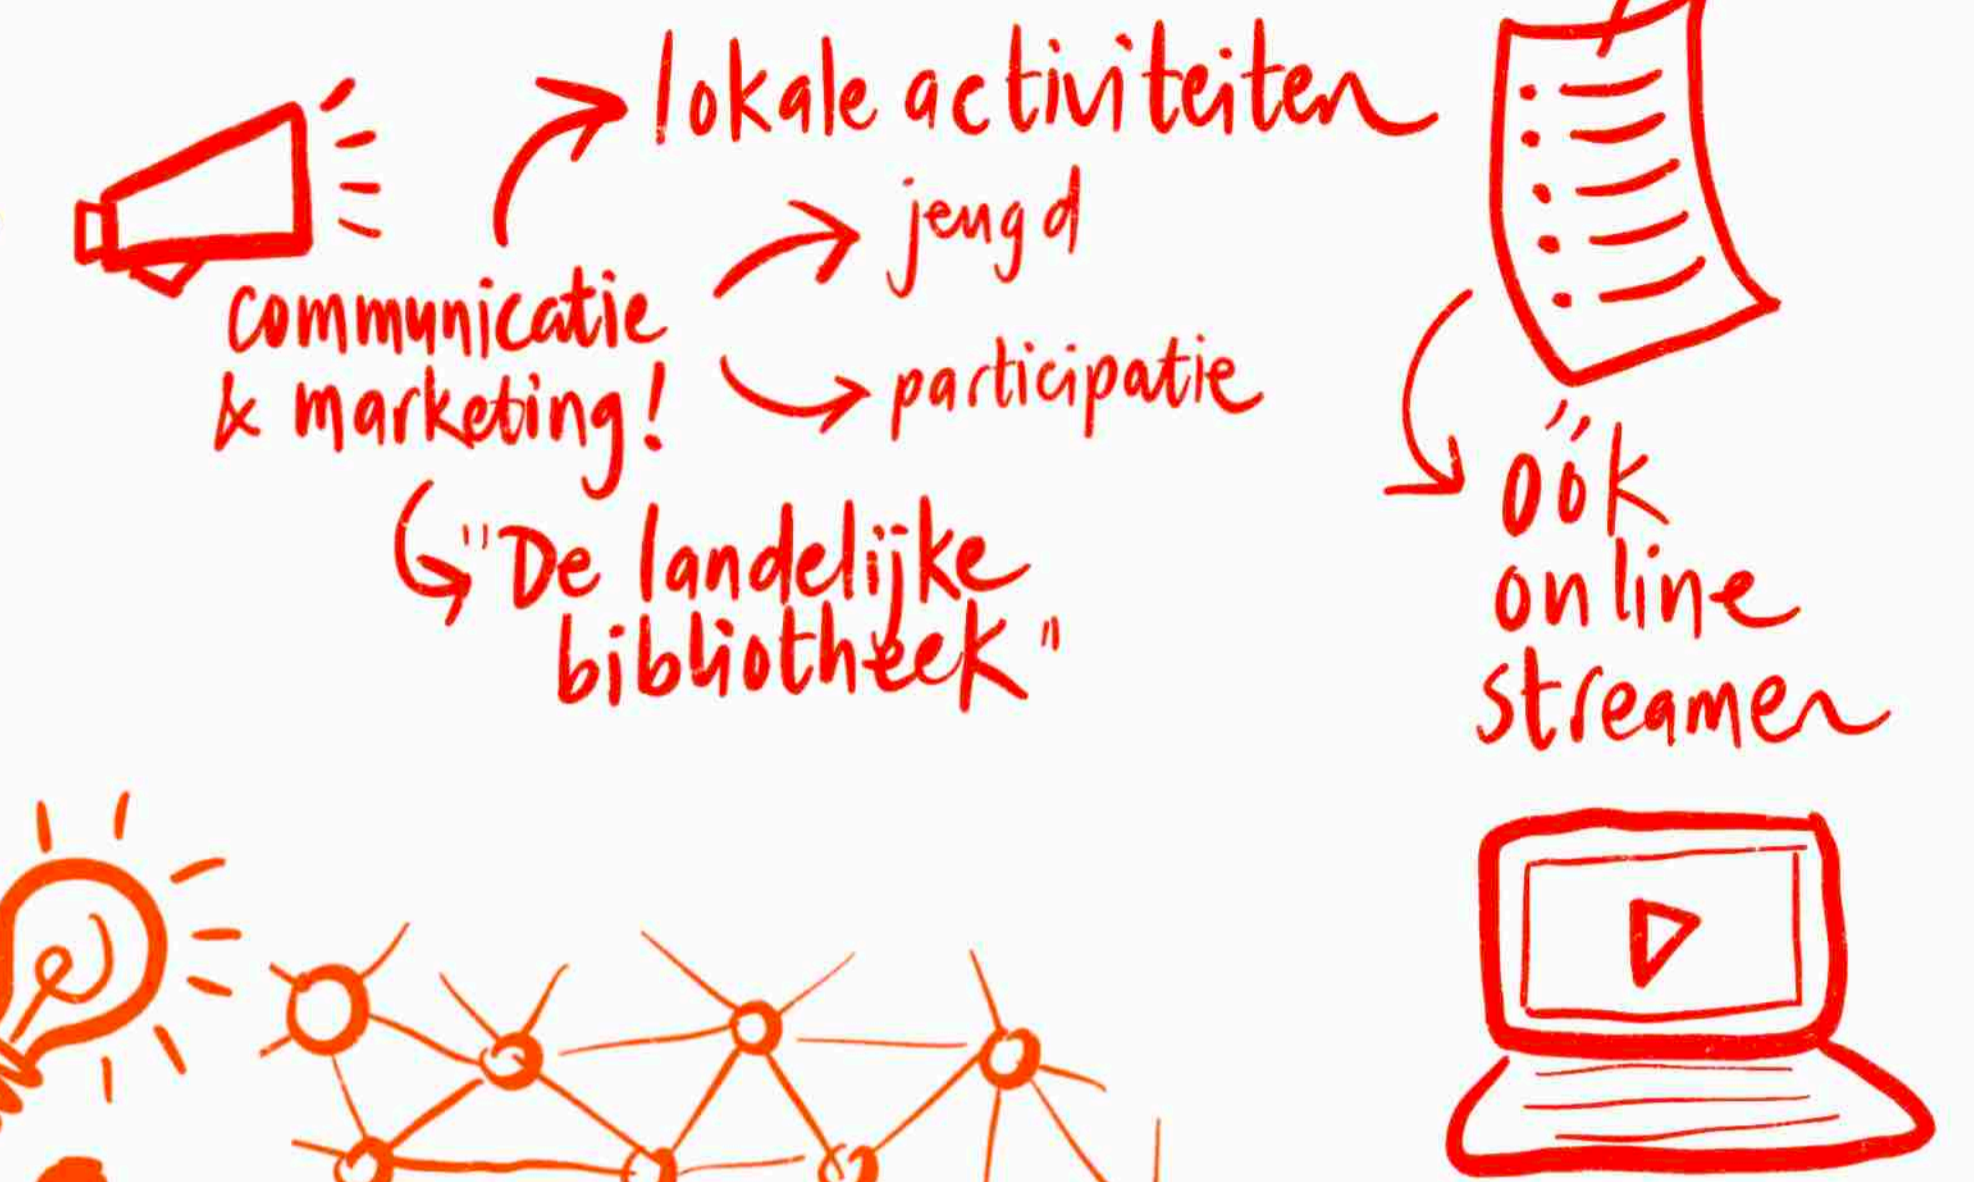 lokale activiteiten
jeugd
communicatie
& marketing!
participatie
"De landelijke
bibliotheek"
óók
online
streamen